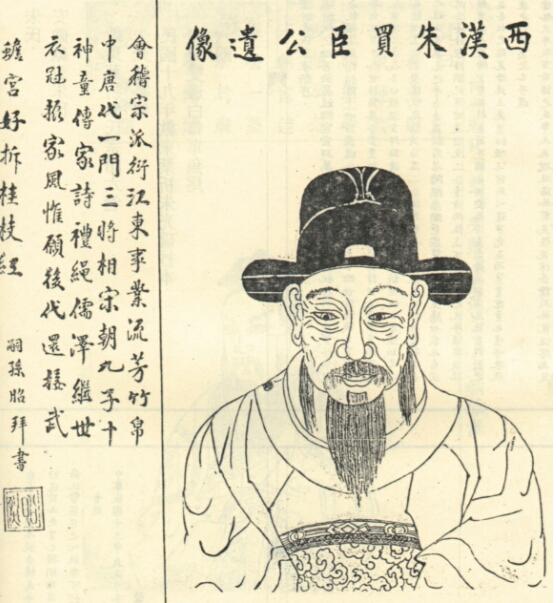 西漢朱買臣公遺像
會稽宗派衍江東事業流芳竹帛
中唐代一門三將相宋朝九子十
神童傳家詩禮繩儒澤繼世
衣冠家風惟願後代還接武
蟾宮好拆桂枝紅
嗣孫昭拜書